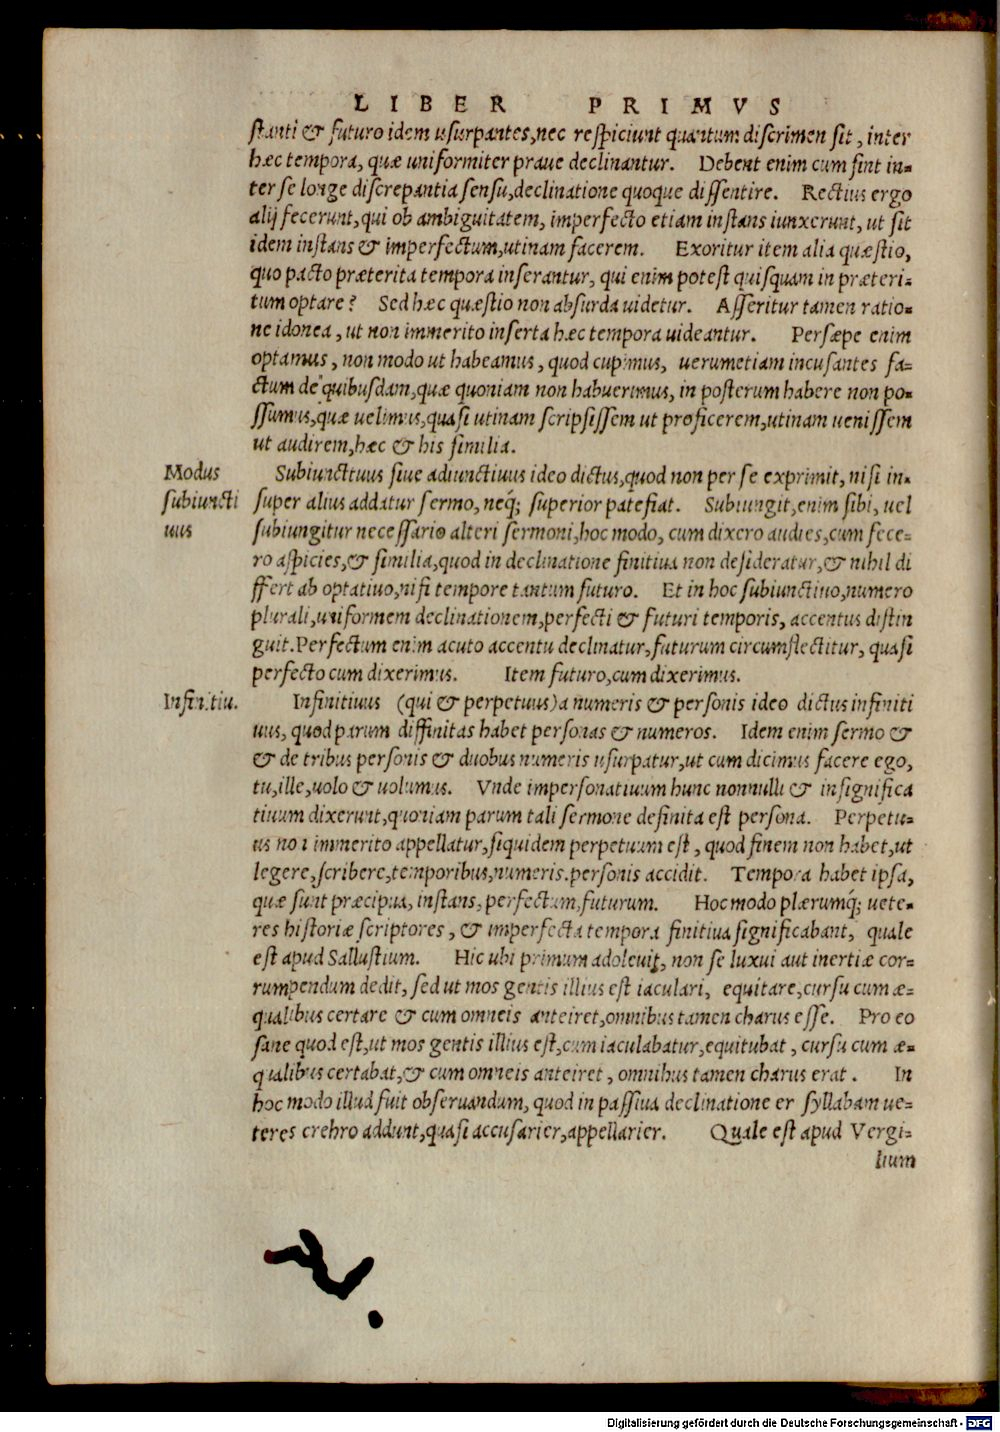 LIBER PRIMVS
stanti & futuro idem usurpantes,nec respiciunt quantum discrimen sit, inter
hæc tempora, quæ uniformiter praue declinantur. Debent enim cum sint in=
ter se longe discrepantia sensu,declinatione quoque dissentire. Rectius ergo
alij fecerunt,qui ob ambiguitatem, imperfecto etiam instans iunxerunt, ut sit
idem instans & imperfectum,utinam facerem. Exoritur item alia quæstio,
quo pacto præterita tempora inserantur, qui enim potest quisquam in præteri=
tum optare? Sed hæc quæstio non absurda uidetur. Asseritur tamen ratio=
ne idonea, ut non immerito inserta hæc tempora uideantur. Persæpe enim
optamus, non modo ut habeamus, quod cupimus, uerumetiam incusantes fa=
ctum de quibusdam,quæ quoniam non habuerimus, in posterum habere non po=
ssumus,quæ uelimus,quasi utinam scripsissem ut proficerem,utinam uenissem
ut audirem,hæc & his similia.
Modus
subiuncti
uus
Subiunctiuus siue adiunctiuus ideo dictus,quod non per se exprimit, nisi in=
super alius addatur sermo, neq́; superior patefiat. Subiungit,enim sibi, uel
subiungitur necessario alteri sermoni,hoc modo, cum dixero audies,cum fece=
ro aspicies,& similia,quod in declinatione finitiua non desideratur,& nihil di
ffert ab optatiuo,nisi tempore tantum futuro. Et in hoc subiunctiuo,numero
plurali,uniformem declinationem,perfecti & futuri temporis, accentus distin
guit.Perfectum enim acuto accentu declinatur,futurum circumflectitur, quasi
perfecto cum dixerimus. Item futuro,cum dixerimus.
Infinitiu.
Infinitiuus (qui & perpetuus)a numeris & personis ideo dictus infiniti
uus, quod parum diffinitas habet personas & numeros. Idem enim sermo &
& de tribus personis & duobus numeris usurpatur,ut cum dicimus facere ego,
tu,ille,uolo & uolumus. Vnde impersonatiuum hunc nonnulli & insignifica
tiuum dixerunt,quoniam parum tali sermone definita est persona. Perpetu=
us non immerito appellatur,siquidem perpetuum est, quod finem non habet,ut
legere,scribere,temporibus,numeris.personis accidit. Tempora habet ipsa,
quæ sunt præcipua, instans, perfectum,futurum. Hoc modo plærumq́; uete=
res historiæ scriptores, & imperfecta tempora finitiua significabant, quale
est apud Sallustium. Hic ubi primum adoleuit, non se luxui aut inertiæ cor=
rumpendum dedit, sed ut mos gentis illius est iaculari, equitare,cursu cum æ=
qualibus certare & cum omneis anteiret,omnibus tamen charus esse. Pro eo
sane quod est,ut mos gentis illius est,cum iaculabatur,equitubat, cursu cum æ=
qualibus certabat,& cum omneis anteiret, omnibus tamen charus erat. In
hoc modo illud fuit obseruandum, quod in passiua declinatione er syllabam ue=
teres crebro addunt,quasi accusarier,appellarier. Quale est apud Vergi=
lium
Digitalisierung gefördert durch die Deutsche Forschungsgemeinschaft - DFG